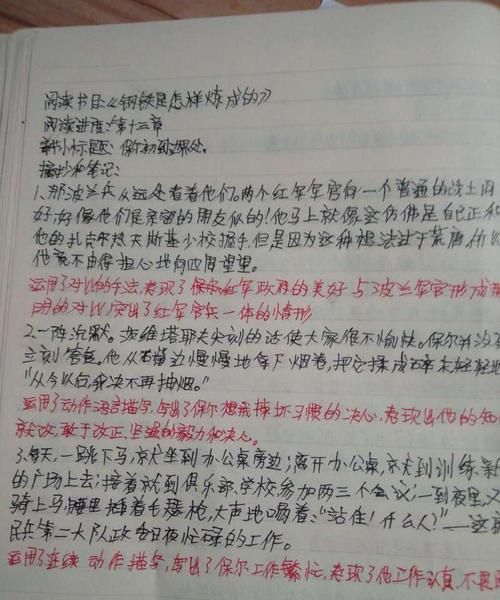 阅读书目:《钢铁是怎样炼成的》
阅读进度:第十三章
章小标题:保尔初到
摘抄和笔记:
1、那波兰兵从远处看着他们。两个红军军官向一个普通的战士问
好,好像他们是亲密的朋友似的!他马上就像这仿佛是自己正和
他的扎克尔热夫斯基少校握手,但是因为这种想法过于荒唐,所以
他就不由得担心地向四周望望。
运用了对比的手法,表现了保尔红军政府的美好与波兰军官形成鲜
明的对比,突出了红军官兵一体的情形
2.一阵沉默。茨维塔耶夫尖刻的话使大家很不愉快。保尔并没有
立刻答复。他从嘴边慢慢地拿下烟卷,把它揉成碎末轻轻地
"从今以后我决不再抽烟。"
运用了动作语言描写,写出了保尔想戒掉坏习惯的决心,表现出他的知
就改,敢于改正,坚强的毅力和决心。
3、每天,一跳下马,就坐到办公桌旁边;离开办公桌,就到训练新
的广场上去;接着就到俱乐部、学校,参加两三个会议;一到夜里,又
骑上马,腰里插着毛瑟枪,大声地喝着:"站住!什么人?"——这就
民兵第二大队政委日夜忙碌的工作。
运用了连续动作描写,写出了保尔工作繁忙,表现了他工作认真,不畏